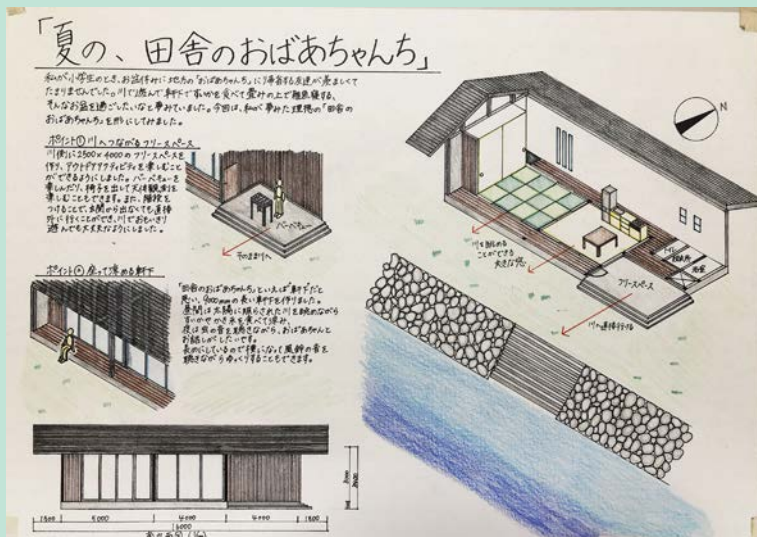 「夏の、田舎のおばあちゃんち」
私が小学生のとき、お盆休みに地方の「おばあちゃんち」に帰省する友達が羨ましくて
たまりませんでした。川で遊んで軒下ですいかを食べて畳の上で雑魚寝する、
そんなお盆を過ごしたいなと夢みていました。今回は、私が夢みた理想の「田舎の
おばあちゃんち」を形にしてみました。
ポイント① 川へつながるフリースペース
川側に2500×4000のフリースペースを
作り、アウトドアアクティビティを楽しむこと
ができるようにしました。バーベキューを
楽しんだり、椅子を出して天体観測を
楽しむこともできます。また、階段を
つけることで、玄関から出なくても直接
外に行くことができ、川でおもいきり
遊んでも大丈夫なようにしました。
バーベキュー
そのまま川へ
ポイント② 座って涼める軒下
「田舎のおばあちゃんち」といえば軒下だと
思い、9000mmの長い軒下を作りました。
昼間は太陽に照らされた川を眺めながら
すいかやかき氷を食べて涼み、
夜は虫の音を聴きながら、おばあちゃんと
お話しがしたいです。
長めにしているので横になって風鈴の音を
聴きながらゆっくりすることもできます。
N
川を眺める
ことができる
大きな窓
トイレ
洗面所
浴室
フリースペース
川へ直接行ける
1800
5000
4000
4000
1800
16000